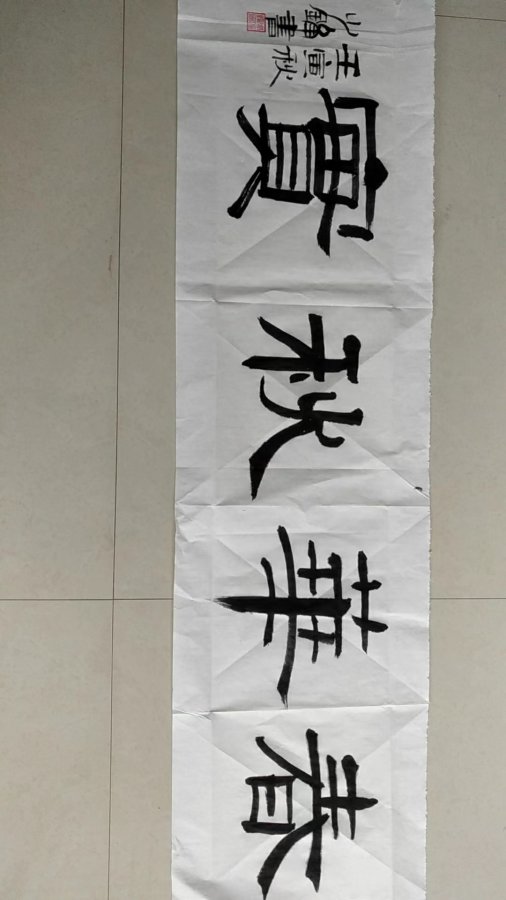 春華秋實
壬寅秋
錦書